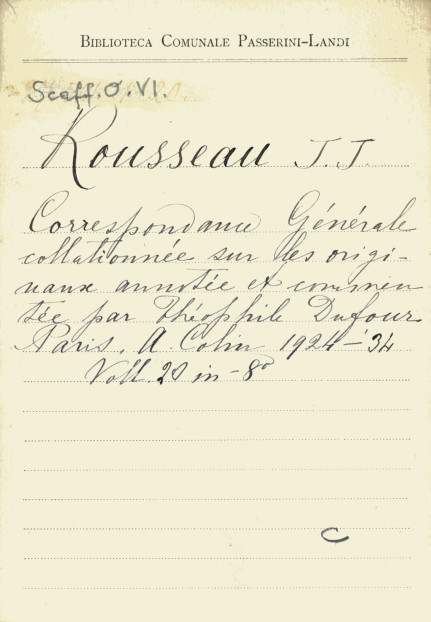 BIBLIOTECA COMUNALE PASSERINI-LANDI
Scaff. O. VI.
Rousseau J. J.
Correspondance Générale
collationnée sur les origi-
naux annotée et commen
tée par Théophile Dufour
Paris. A Colin 1924-'34
Voll. 20 in-8°
C